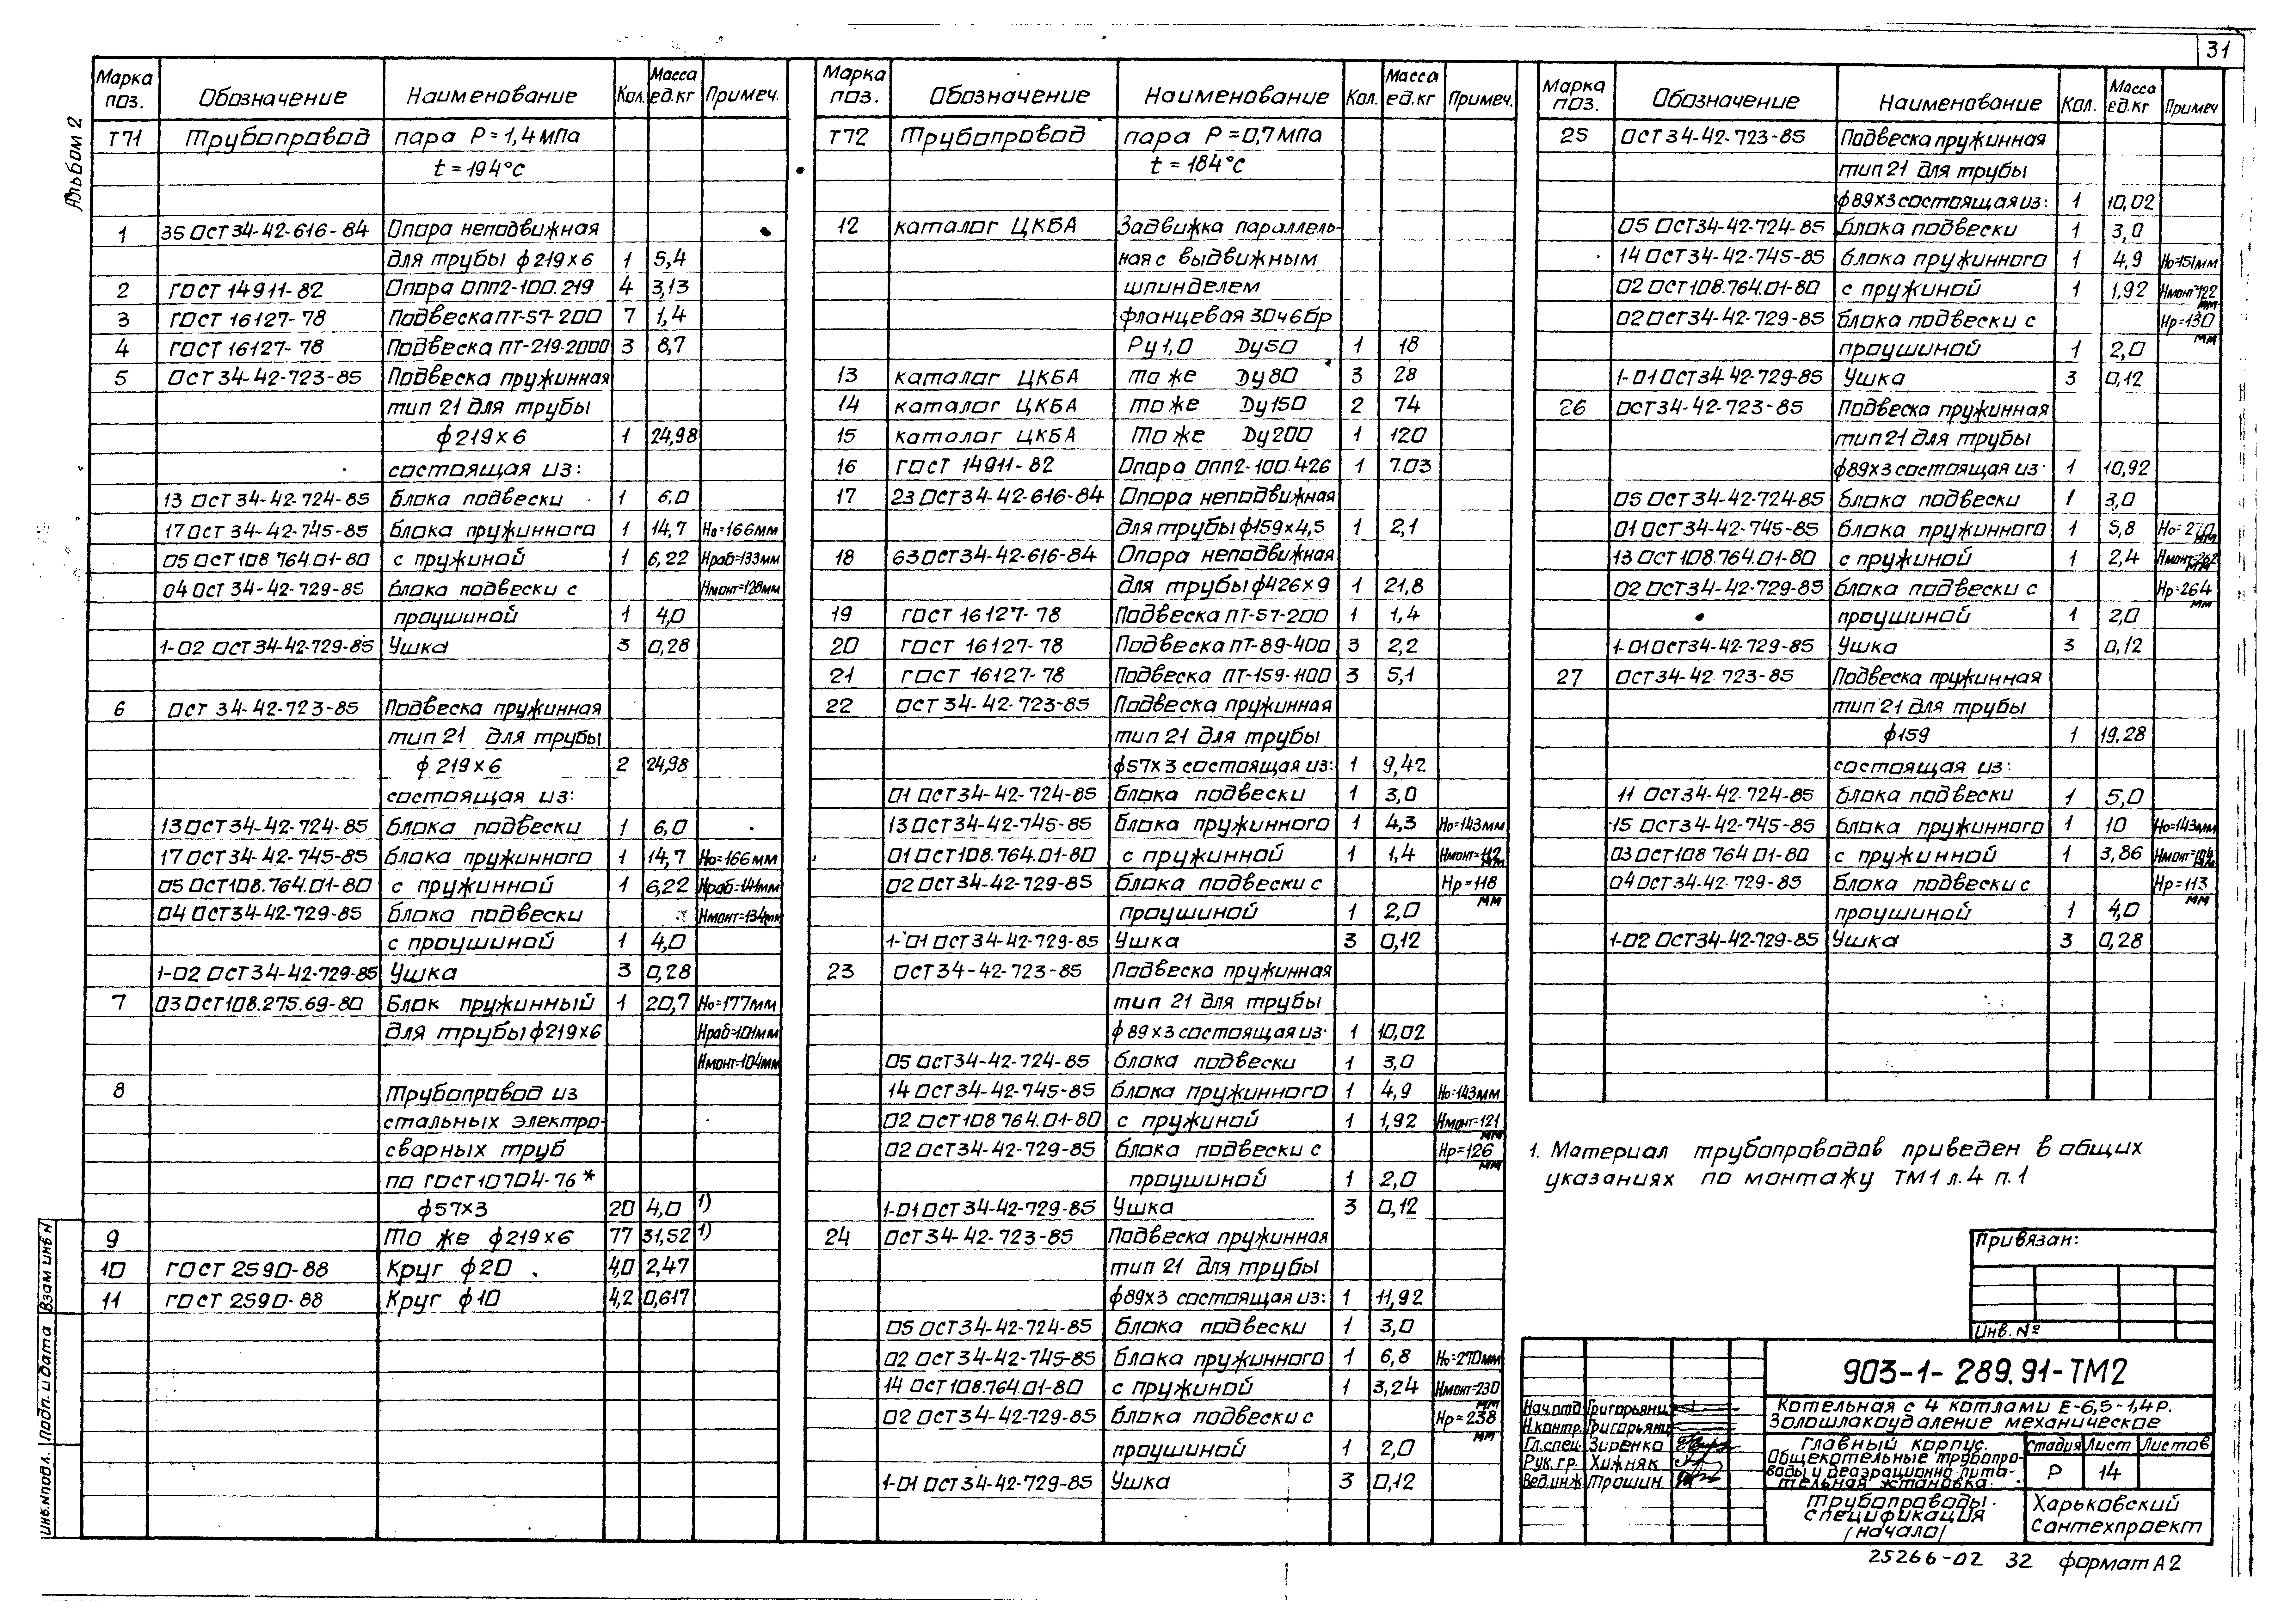 31
Альбом 2
Марка поз. Обозначение Наименование Кол. Масса ед.кг Примеч.
Т71 Трубопровод пара Р=1,4мПа
t=194°С
1 35 ОСТ 34-42-616-84 Опора неподвижная
для трубы ф219х6 1 5,4
2 ГОСТ 14911-82 Опора ОПП2-100.219 4 3,13
3 ГОСТ 16127-78 Подвеска ПТ-57-200 7 1,4
4 ГОСТ 16127-78 Подвеска ПТ-219-2000 3 8,7
5 ОСТ 34-42-723-85 Подвеска пружинная
тип 21 для трубы
ф219х6 1 24,98
состоящая из:
13 ОСТ 34-42-724-85 блока подвески 1 6,0
17 ОСТ 34-42-745-85 блока пружинного 1 14,7 Но=166мм
05 ОСТ108 764.01-80 с пружиной 1 6,22 Нраб=133мм
04 ОСТ 34-42-729-85 блока подвески с Нмонт=128мм
проушиной 1 4,0
1-02 ОСТ 34-42-729-85 Ушка 3 0,28
6 ОСТ 34-42-723-85 Подвеска пружинная
тип 21 для трубы
ф219х6 2 24,98
состоящая из:
13 ОСТ 34-42-724-85 блока подвески 1 6,0
17 ОСТ 34-42-745-85 блока пружинного 1 14,7 Но=166мм
05 ОСТ108.764.01-80 с пружинной 1 6,22 Нраб=141мм
04 ОСТ 34-42-729-85 блока подвески Нмонт=134мм
с проушиной 1 4,0
1-02 ОСТ 34-42-729-85 Ушка 3 0,28
7 03 ОСТ108.275.69-80 Блок пружинный 1 20,7 Но=177мм
для трубы ф219х6 Нраб=101мм
Нмонт=104мм
8 Трубопровод из
стальных электро-
сварных труб
по ГОСТ10704-76*
ф57х3 20 4,0 1)
9 То же ф219х6 77 31,52 1)
10 ГОСТ 2590-88 Круг ф20 4,0 2,47
11 ГОСТ 2590-88 Круг ф10 4,2 0,617
Марка поз. Обозначение Наименование Кол. Масса ед.кг Примеч.
Т72 Трубопровод пара Р=0,7мПа
t=184°С
12 каталог ЦКБА Задвижка параллель-
ная с выдвижным
шпинделем
фланцевая 30ч6бр
Ру1,0 Ду50 1 18
13 каталог ЦКБА то же Ду80 3 28
14 каталог ЦКБА то же Ду150 2 74
15 каталог ЦКБА то же Ду200 1 120
16 ГОСТ 14911-82 Опора ОПП2-100.426 1 7.03
17 23 ОСТ 34-42-616-84 Опора неподвижная
для трубы ф159х4,5 1 2,1
18 63 ОСТ 34-42-616-84 Опора неподвижная
для трубы ф426х9 1 21,8
19 ГОСТ 16127-78 Подвеска ПТ-57-200 1 1,4
20 ГОСТ 16127-78 Подвеска ПТ-89-400 3 2,2
21 ГОСТ 16127-78 Подвеска ПТ-159-1100 3 5,1
22 ОСТ 34-42-723-85 Подвеска пружинная
тип 21 для трубы
ф57х3 состоящая из: 1 9,42
01 ОСТ 34-42-724-85 блока подвески 1 3,0
13 ОСТ 34-42-745-85 блока пружинного 1 4,3 Но=143мм
01 ОСТ108.764.01-80 с пружинной 1 1,4 Нмонт=112 мм
02 ОСТ 34-42-729-85 блока подвески с Нр=118 мм
проушиной 1 2,0
1-01 ОСТ 34-42-729-85 Ушка 3 0,12
23 ОСТ 34-42-723-85 Подвеска пружинная
тип 21 для трубы
ф89х3 состоящая из: 1 10,02
05 ОСТ 34-42-724-85 блока подвески 1 3,0
14 ОСТ 34-42-745-85 блока пружинного 1 4,9 Но=143мм
02 ОСТ108 764.01-80 с пружиной 1 1,92 Нмонт=121 мм
02 ОСТ 34-42-729-85 блока подвески с Нр=126 мм
проушиной 1 2,0
1-01 ОСТ 34-42-729-85 Ушка 3 0,12
24 ОСТ 34-42-723-85 Подвеска пружинная
тип 21 для трубы
ф89х3 состоящая из: 1 11,92
05 ОСТ 34-42-724-85 блока подвески 1 3,0
02 ОСТ 34-42-745-85 блока пружинного 1 6,8 Но=270мм
14 ОСТ108.764.01-80 с пружиной 1 3,24 Нмонт=230 мм
02 ОСТ 34-42-729-85 блока подвески с Нр=238 мм
проушиной 1 2,0
1-01 ОСТ 34-42-729-85 Ушка 3 0,12
Марка поз. Обозначение Наименование Кол. Масса ед.кг Примеч
25 ОСТ 34-42-723-85 Подвеска пружинная
тип 21 для трубы
ф89х3 состоящая из: 1 10,02
05 ОСТ34-42-724-85 блока подвески 1 3,0
14 ОСТ34-42-745-85 блока пружинного 1 4,9 Но=151мм
02 ОСТ108.764.01-80 с пружиной 1 1,92 Нмонт=122 мм
02 ОСТ34-42-729-85 блока подвески с Нр=130 мм
проушиной 1 2,0
1-01 ОСТ34-42-729-85 Ушка 3 0,12
26 ОСТ34-42-723-85 Подвеска пружинная
тип 21 для трубы
ф89х3 состоящая из: 1 10,92
05 ОСТ34-42-724-85 блока подвески 1 3,0
01 ОСТ34-42-745-85 блока пружинного 1 5,8 Но= мм
13 ОСТ108.764.01-80 с пружиной 1 2,4 Нмонт=262 мм
02 ОСТ34-42-729-85 блока подвески с Нр=264 мм
проушиной 1 2,0
1-01 ОСТ34-42-729-85 Ушка 3 0,12
27 ОСТ34-42-723-85 Подвеска пружинная
тип 21 для трубы
ф159 1 19.28
состоящая из:
11 ОСТ34-42-724-85 блока подвески 1 5,0
15 ОСТ34-42-745-85 блока пружинного 1 10 Но=143мм
03 ОСТ108 764 01-80 с пружиной 1 3,86 Нмонт=104 мм
04 ОСТ34-42-729-85 блока подвески с Нр=113 мм
проушиной 1 4,0
1-02 ОСТ34-42-729-85 Ушка 3 0,28
1. Материал трубопроводов приведен в общих
указаниях по монтажу ТМ1 л.4 п.1
Привязан:
Инв.№
903-1-289.91-ТМ2
Котельная с 4 котлами Е-6,5-1,4Р.
Золошлакоудаление механическое
Нач.отд Григорьянц
Н.контр. Григорьянц
Гл.спец. Зиренко
Рук.гр. Хижняк
Вед.инж Трошин
Главный корпус.
Общекотельные трубопро-
воды и деаэрационно-пита-
тельная установка.
Стадия Лист Листов
Р 14
Трубопроводы.
Спецификация
/начало/
Харьковский
Сантехпроект
25266-02 32 формат А2
Взам инв N
Подп. и дата
Инв.N подл.